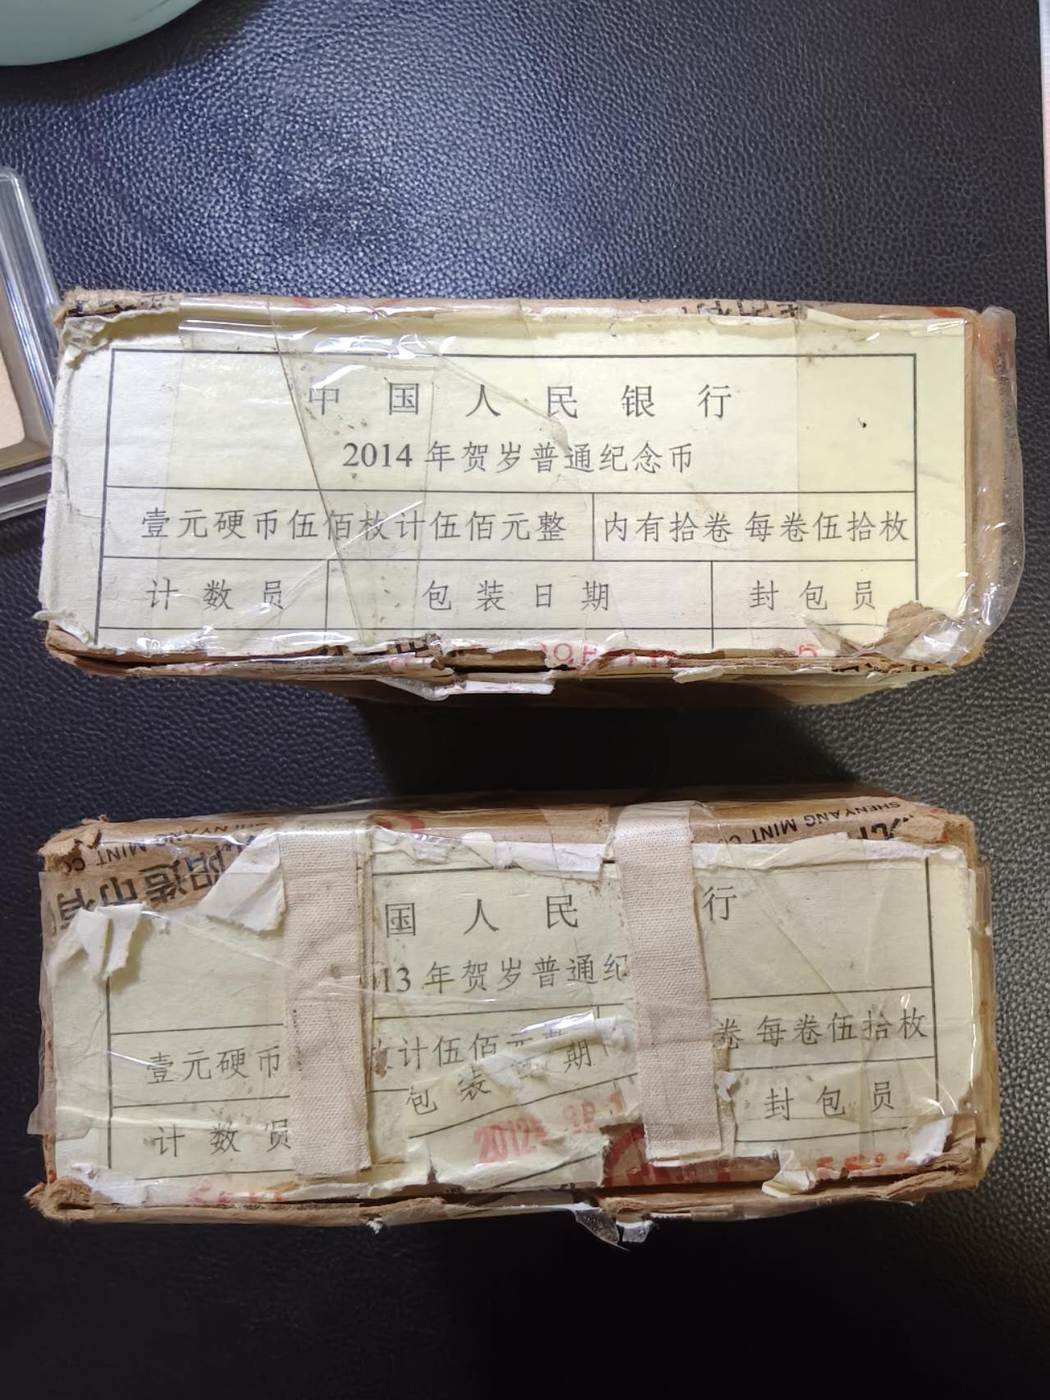 中国人民银行
2014年贺岁普通纪念币
壹元硬币伍佰枚计伍佰元整 内有拾卷 每卷伍拾枚
计数员 包装日期 封包员
SHENYANG MINT
阳造币有
国人民 行
13年贺岁普通纪
壹元硬币 枚计伍佰元 卷 每卷伍拾枚
计数员 包装 期 封包员
2012年